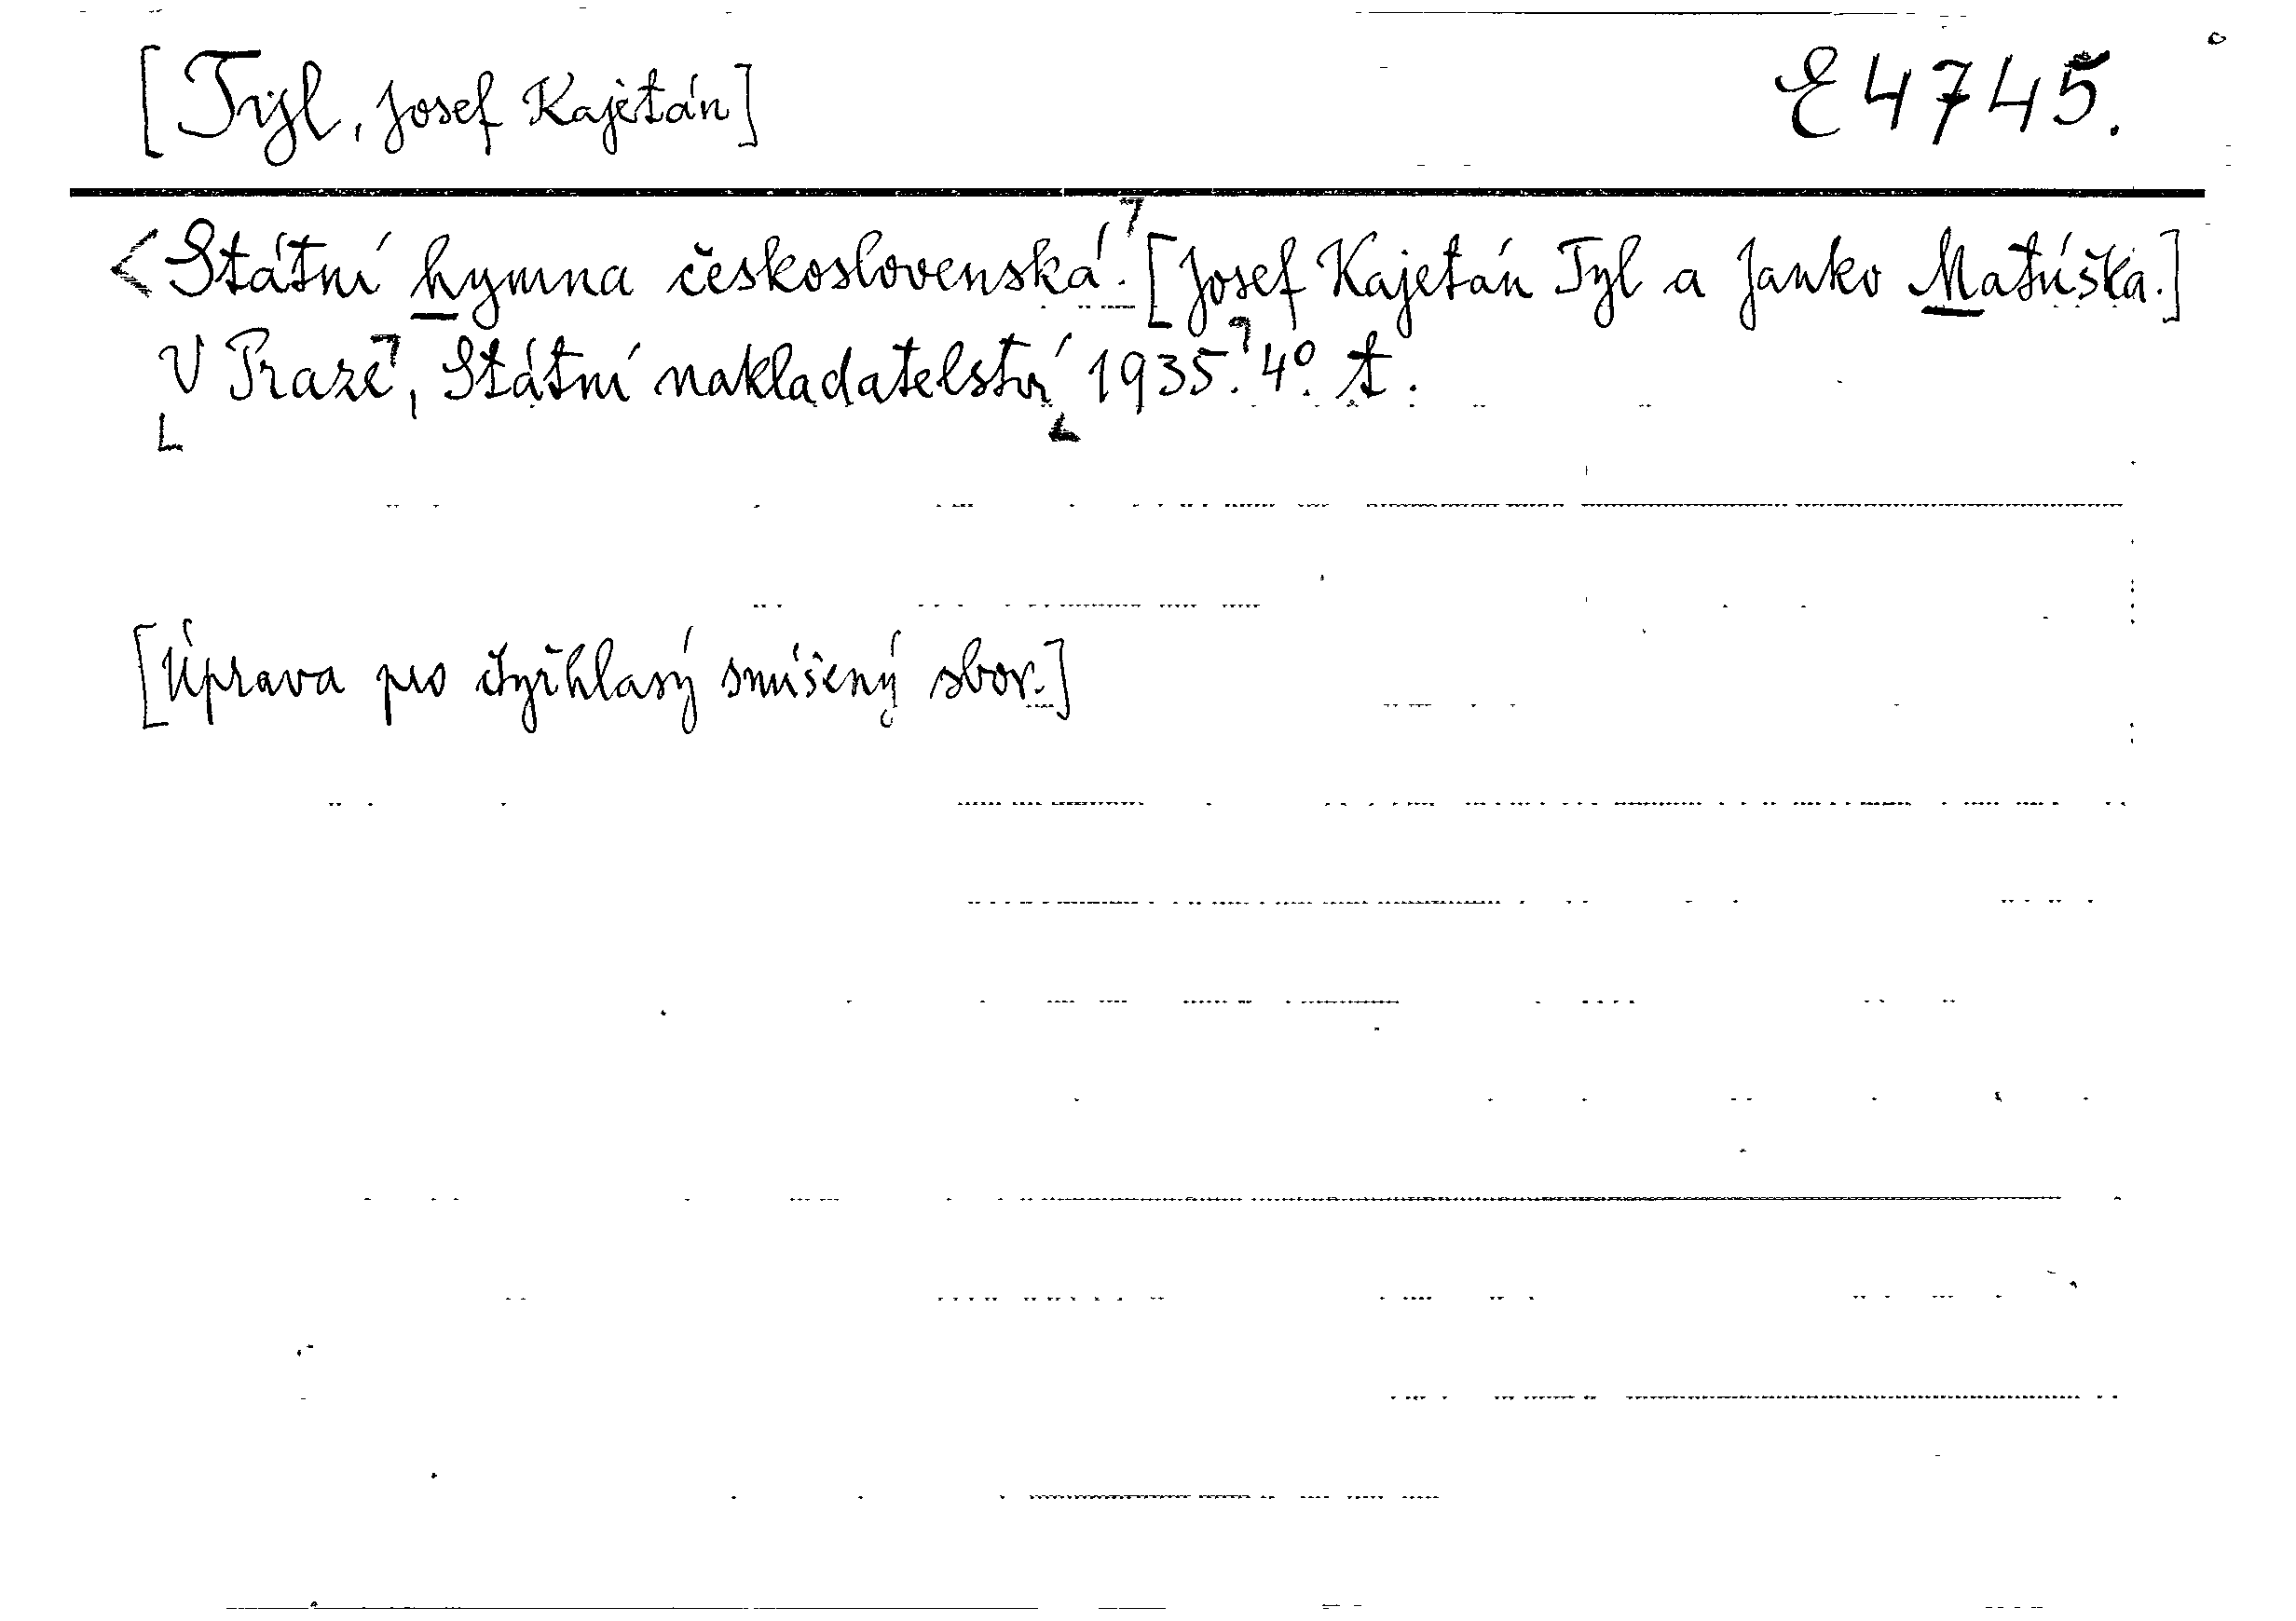 [Tyl, Josef Kajetán] E 4745.
<Státní hymna československá.⌉ [Josef Kajetán Tyl a Janko Matúška.]
⌊V Praze⌉, Státní nakladatelství ⌊1935.⌉ 4°. t.
[Úprava pro čtyřhlasý smíšený sbor.]